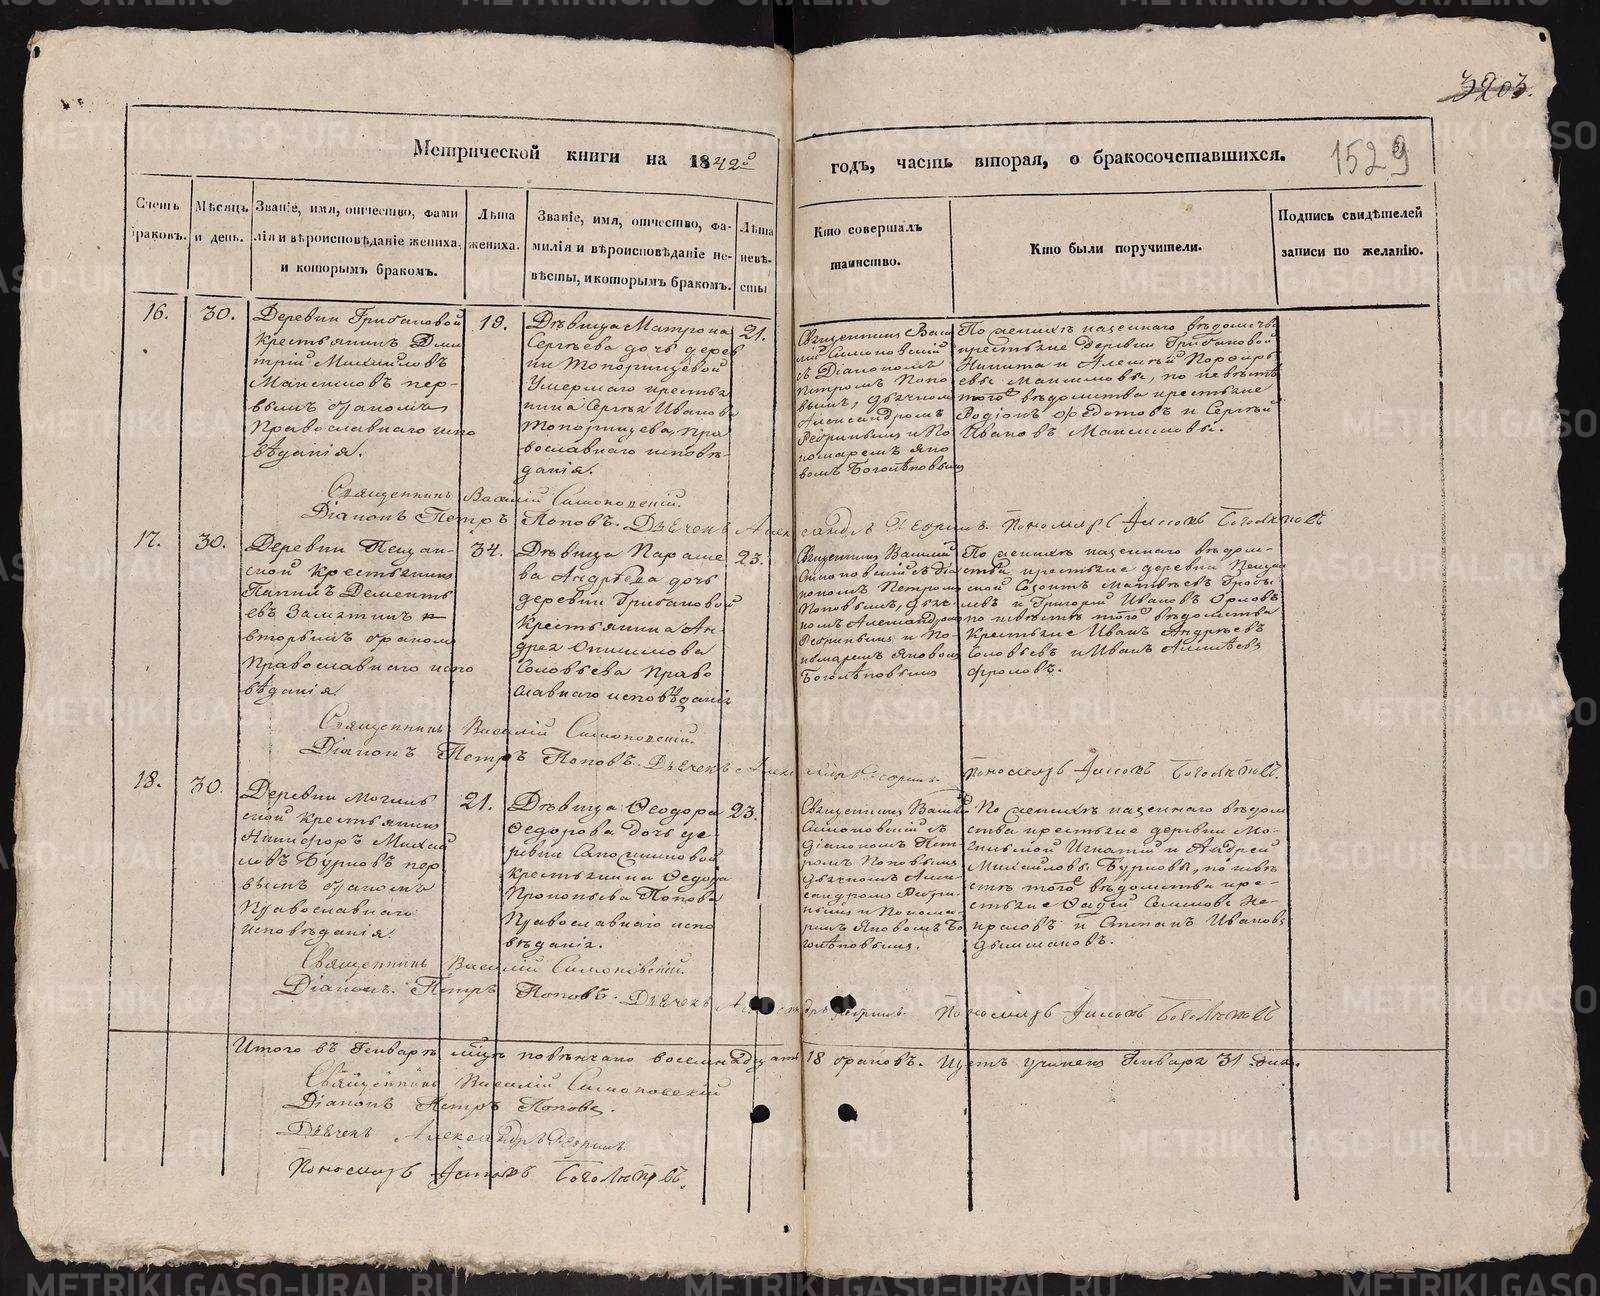 3203.
1529
Метрической книги на 1842й годъ, часть вторая, о бракосочетавшихся.
Счетъ браковъ.
Мѣсяцъ и день.
Званіе, имя, отчество, фами
лія и вѣроисповѣданіе жениха,
и которымъ бракомъ.
Лѣта
жениха.
Званіе, имя, отчество, фа-
милія и вѣроисповѣданіе не-
вѣсты, и которымъ бракомъ.
Лѣта
невѣ-
сты
Кто совершалъ
таинство.
Кто были поручители.
Подпись свидѣтелей
записи по желанію.
16.
30.
Деревни Грибановой
крестьянинъ Дми
трій Михайловъ
Максимовъ пер-
вымъ бракомъ
Православнаго испо
вѣданія.
19.
Дѣвица Матрона
Сергѣева дочь дерев
ни Топорищевой
Умершаго крестья
нина Сергѣя Иванова
Топорищева, пра
вославнаго исповѣ-
данія.
21.
Священникъ Васи
лій Симоновскій
съ Діакономъ
Петромъ Попо
вымъ, дьячкомъ
Александромъ
и По
номаремъ Яко
вомъ Боголѣповымъ
По женихѣ казеннаго вѣдомства
крестьяне деревни Грибановой
Никита и Алексѣй Порфирь
евы Максимовы, по невѣстѣ
того вѣдомства крестьяне
Родіонъ Федотовъ и Сергѣй
Ивановъ Максимовы.
Священникъ Василій Симоновскій.
Діаконъ Петръ Поповъ. Дьячекъ Александръ Пономарь Іаковъ Боголѣповъ
17.
30.
Деревни Песчан-
ской крестьянинъ
Дементь
евъ Замятинъ
вторымъ бракомъ
Православнаго испо
вѣданія.
34.
Дѣвица Параске
ва Андрѣева дочь
деревни Грибановой
крестьянина Ан-
дрея
Соловьева Право
славнаго исповѣданія
23.
Священникъ Василій
Симоновскій съ Діа
кономъ Петромъ
Поповымъ, дьяч-
комъ Александромъ
и По-
номаремъ Яковомъ
Боголѣповымъ
По женихѣ казеннаго вѣдом-
ства крестьяне деревни Песчан
ской Созонтъ Матвѣевъ
и Григорій Ивановъ Орловъ
по невѣстѣ того вѣдомства
Крестьяне Иванъ Андрѣевъ
Соловьевъ и Иванъ
Фроловъ.
Священникъ Василій Симоновскій.
Діаконъ Петръ Поповъ. Дьячекъ Александръ Пономарь Іаковъ Боголѣповъ.
18.
30.
Деревни Могиль
ской крестьянинъ
Никифоръ Михай
ловъ Бурковъ пер
вымъ бракомъ
Православнаго
исповѣданія.
21.
Дѣвица Феодора
Федорова дочь де-
ревни
крестьянина Федора
Прокопьева Попова
Православнаго испо
вѣданія.
23.
Священникъ Василій
Симоновскій съ
Діакономъ Пет-
ромъ Поповымъ
дьячкомъ Алек-
сандромъ
и Понома-
ремъ Яковомъ Бо
голѣповымъ.
По женихѣ казеннаго вѣдом
ства крестьяне деревни Мо-
гильской Игнатій и Андрей
Михайловы Бурковы, по невѣ
стѣ того вѣдомства кре-
стьяне Фадей Семеновъ Не-
красовъ и Степанъ Ивановъ
Священникъ Василій Симоновскій.
Діаконъ Петръ Поповъ. Дьячекъ Александръ Пономарь Іаковъ Боголѣповъ
Итого въ Генварѣ мцѣ повѣнчано восемнадцать 18 браковъ. Щетъ учиненъ Генваря 31 дня.
Священникъ Василій Симоновскій
Діаконъ Петръ Поповъ.
Дьячекъ Александръ
Пономарь Іаковъ Боголѣповъ.
METRIKI.GASO-URAL.RU